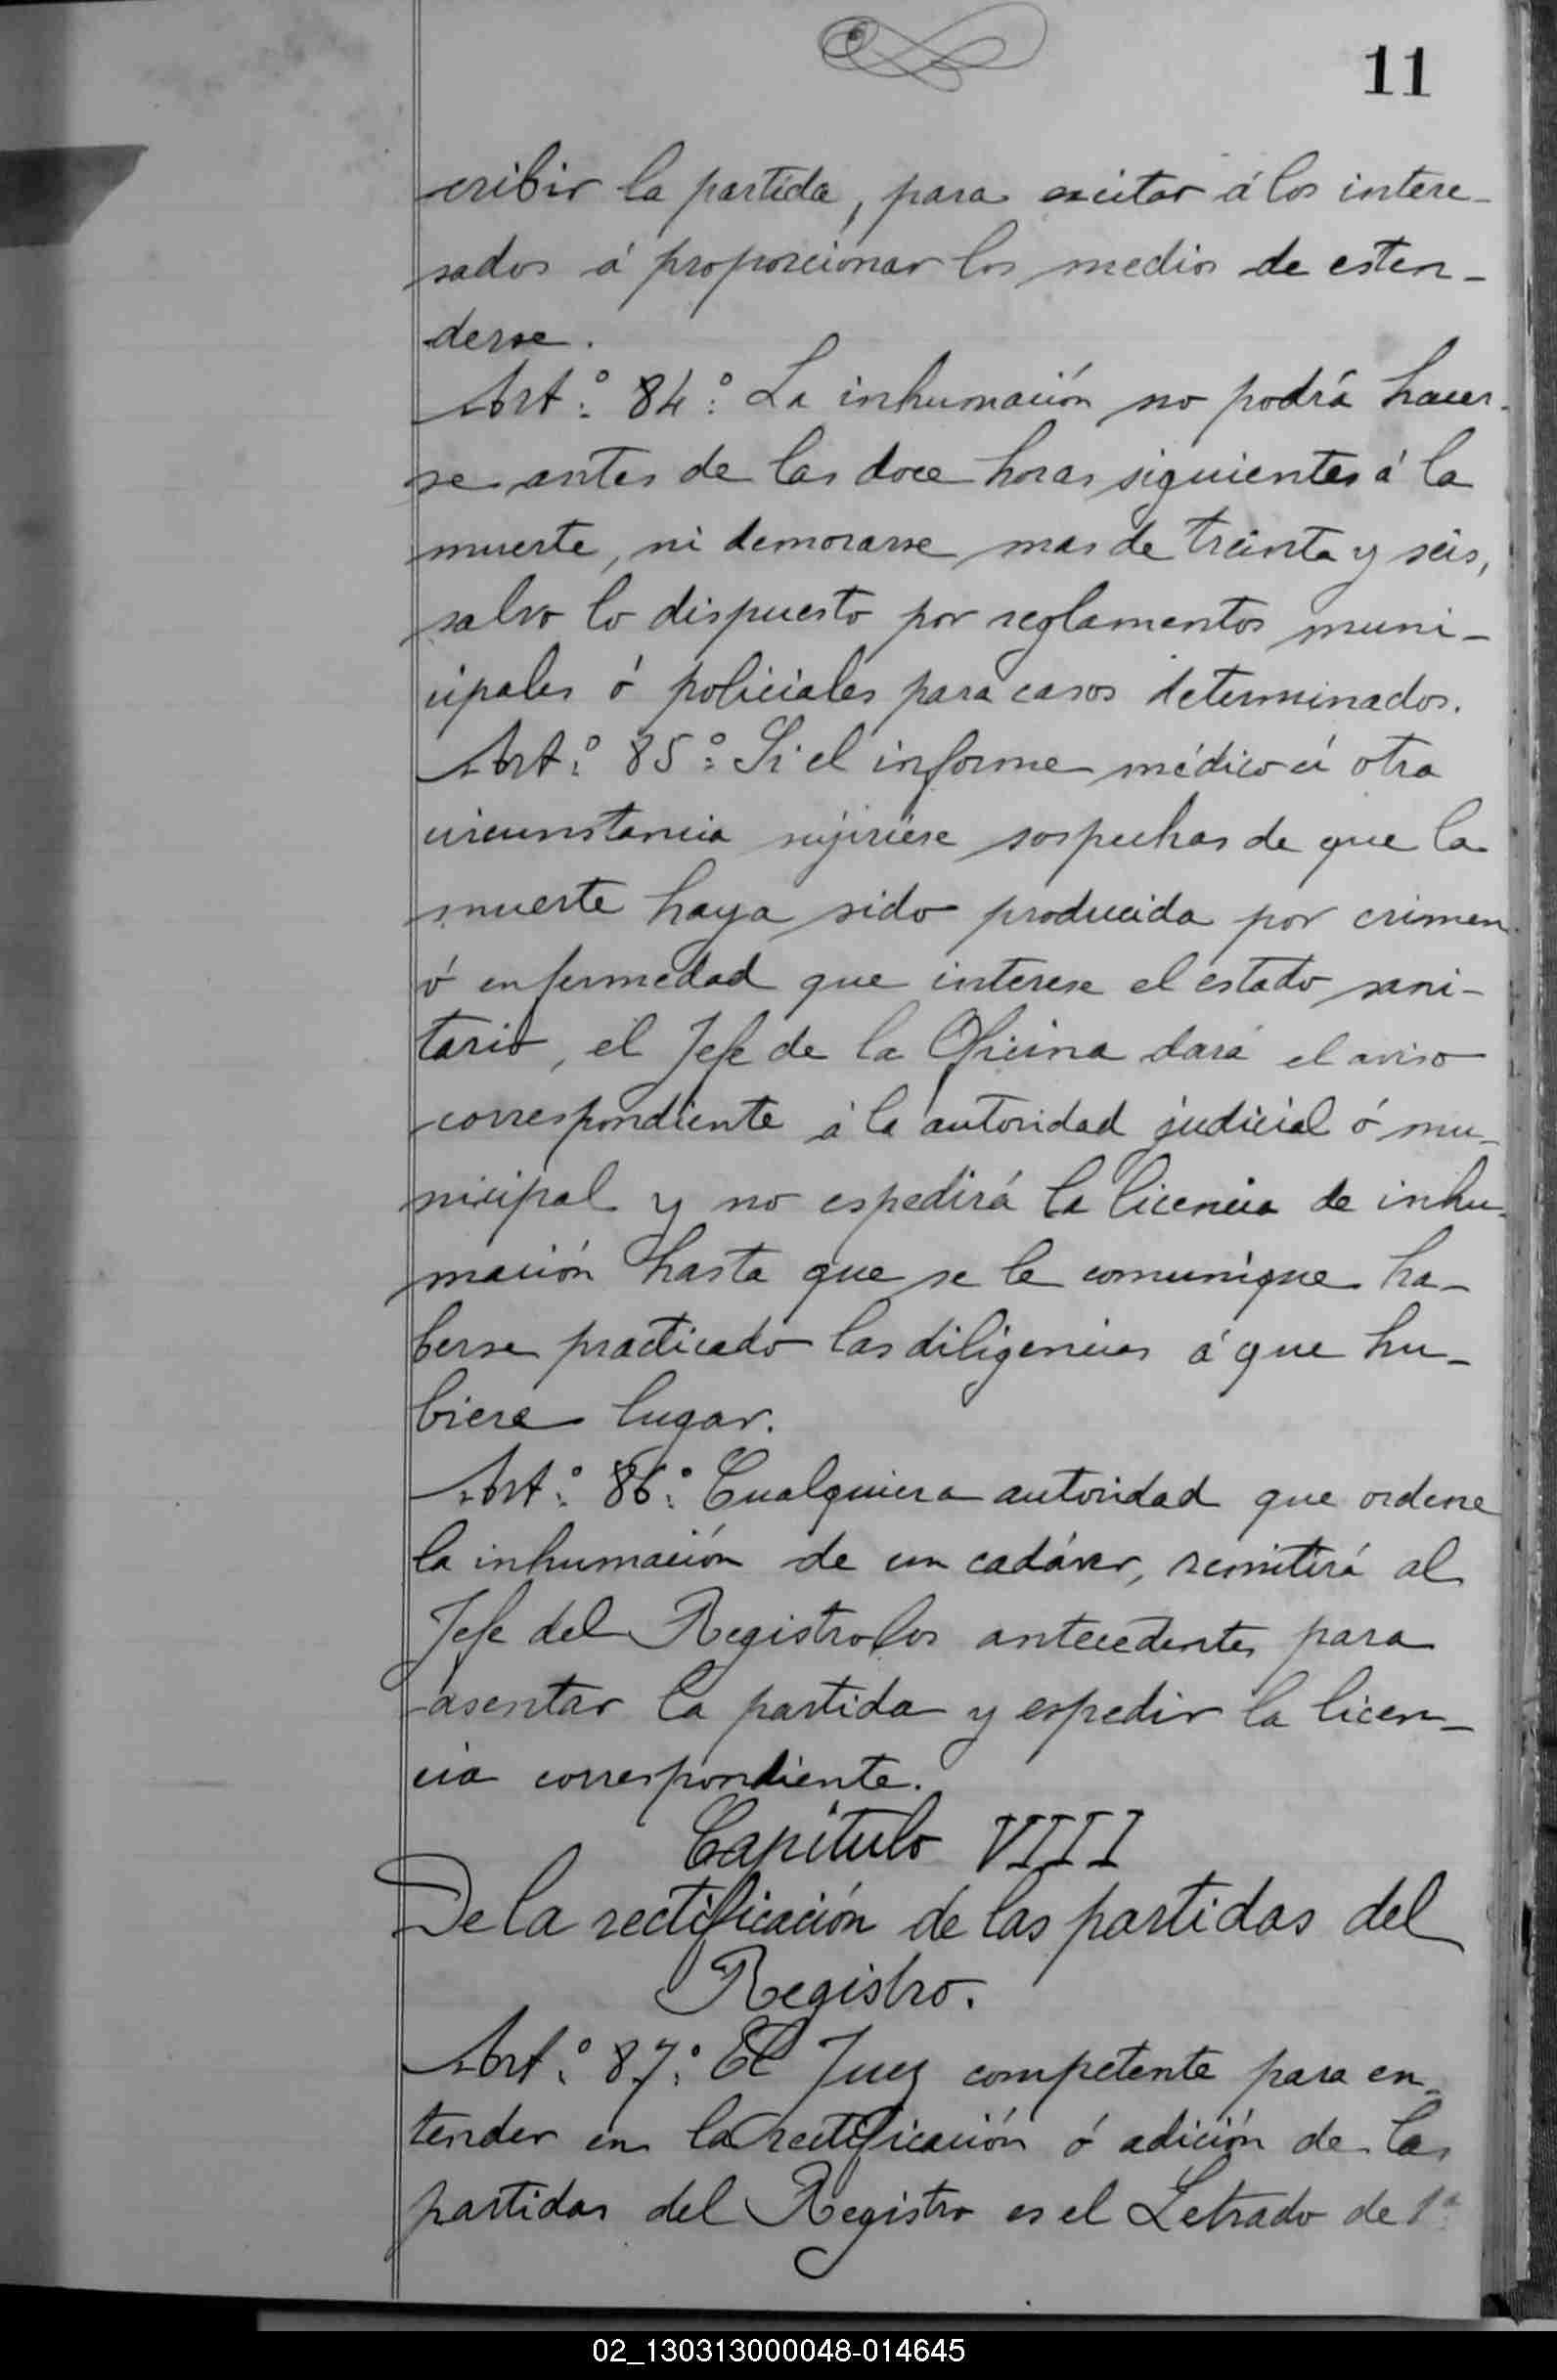 11
cribir la partida, para exitar á los intere-
sados á proporcionar los medios de esten-
derse.
Art.º 84.º La inhumación no podrá hacer-
se antes de las doce horas siguientes á la
muerte, ni demorarse mas de treinta y seis,
salvo lo dispuesto por reglamentos muni-
cipales ó policiales para casos determinados.
Art.º 85.º Si el informe médico ú otra
circunstancia sujiriese sospechas de que la
muerte haya sido producida por crimen
ó enfermedad que interese el estado sani-
tario, el Jefe de la Oficina dará el aviso
correspondiente á la autoridad judicial ó mu-
nicipal y no espedirá la licencia de inhu-
mación hasta que se le comunique ha-
berse practicado las diligencias á que hu-
biere lugar.
Art.º 86.º Cualquiera autoridad que ordene
la inhumación de un cadáver, remitirá al
Jefe del Registro los antecedentes para
asentar la partida y espedir la licen-
cia correspondiente.
Capítulo VIII
De la rectificación de las partidas del
Registro.
Art.º 87.º El Juez competente para en-
tender en la rectificación ó adición de las
partidas del Registro es el Letrado de 1ª
02_130313000048-014645